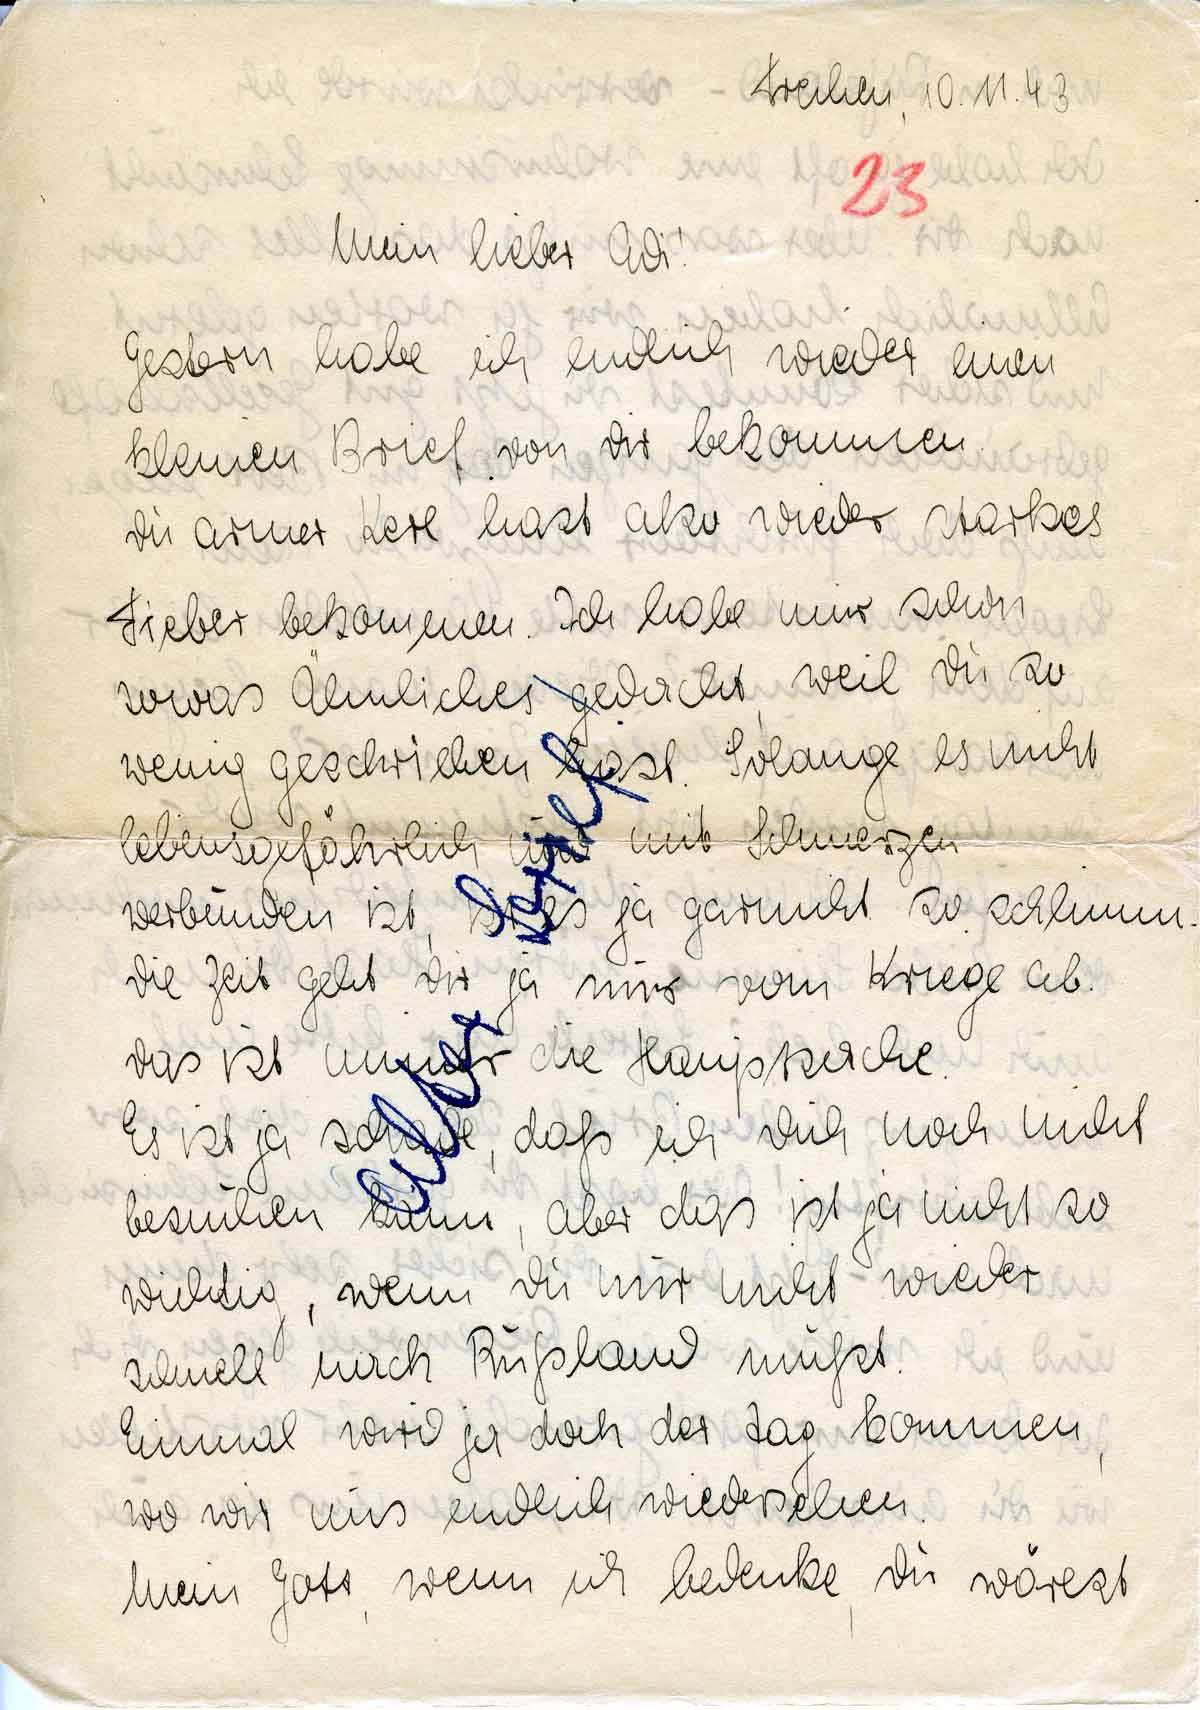 Frechen, 10.11.43
23
Mein lieber Adi!
Gestern habe ich endlich wieder einen
kleinen Brief von dir bekommen.
du armer Kerl hast also wieder starkes
Fieber bekommen. Ich habe mir schon
sowas Ähnliches gedacht, weil du so
wenig geschrieben hast. Solange es nicht
lebensgefährlich und mit Schmerzen
verbunden ist, ist es ja garnicht so schlimm.
die Zeit geht dir ja nur vom Kriege ab.
das ist immer die Hauptsache.
Es ist ja schade, daß ich dich noch nicht
besuchen kann, aber das ist ja nicht so
wichtig, wenn du nur nicht wieder
schnell nach Rußland mußt.
Einmal wird ja doch der Tag kommen,
wo wir uns endlich wiedersehen.
Mein Gott, wenn ich bedenke, du wärest